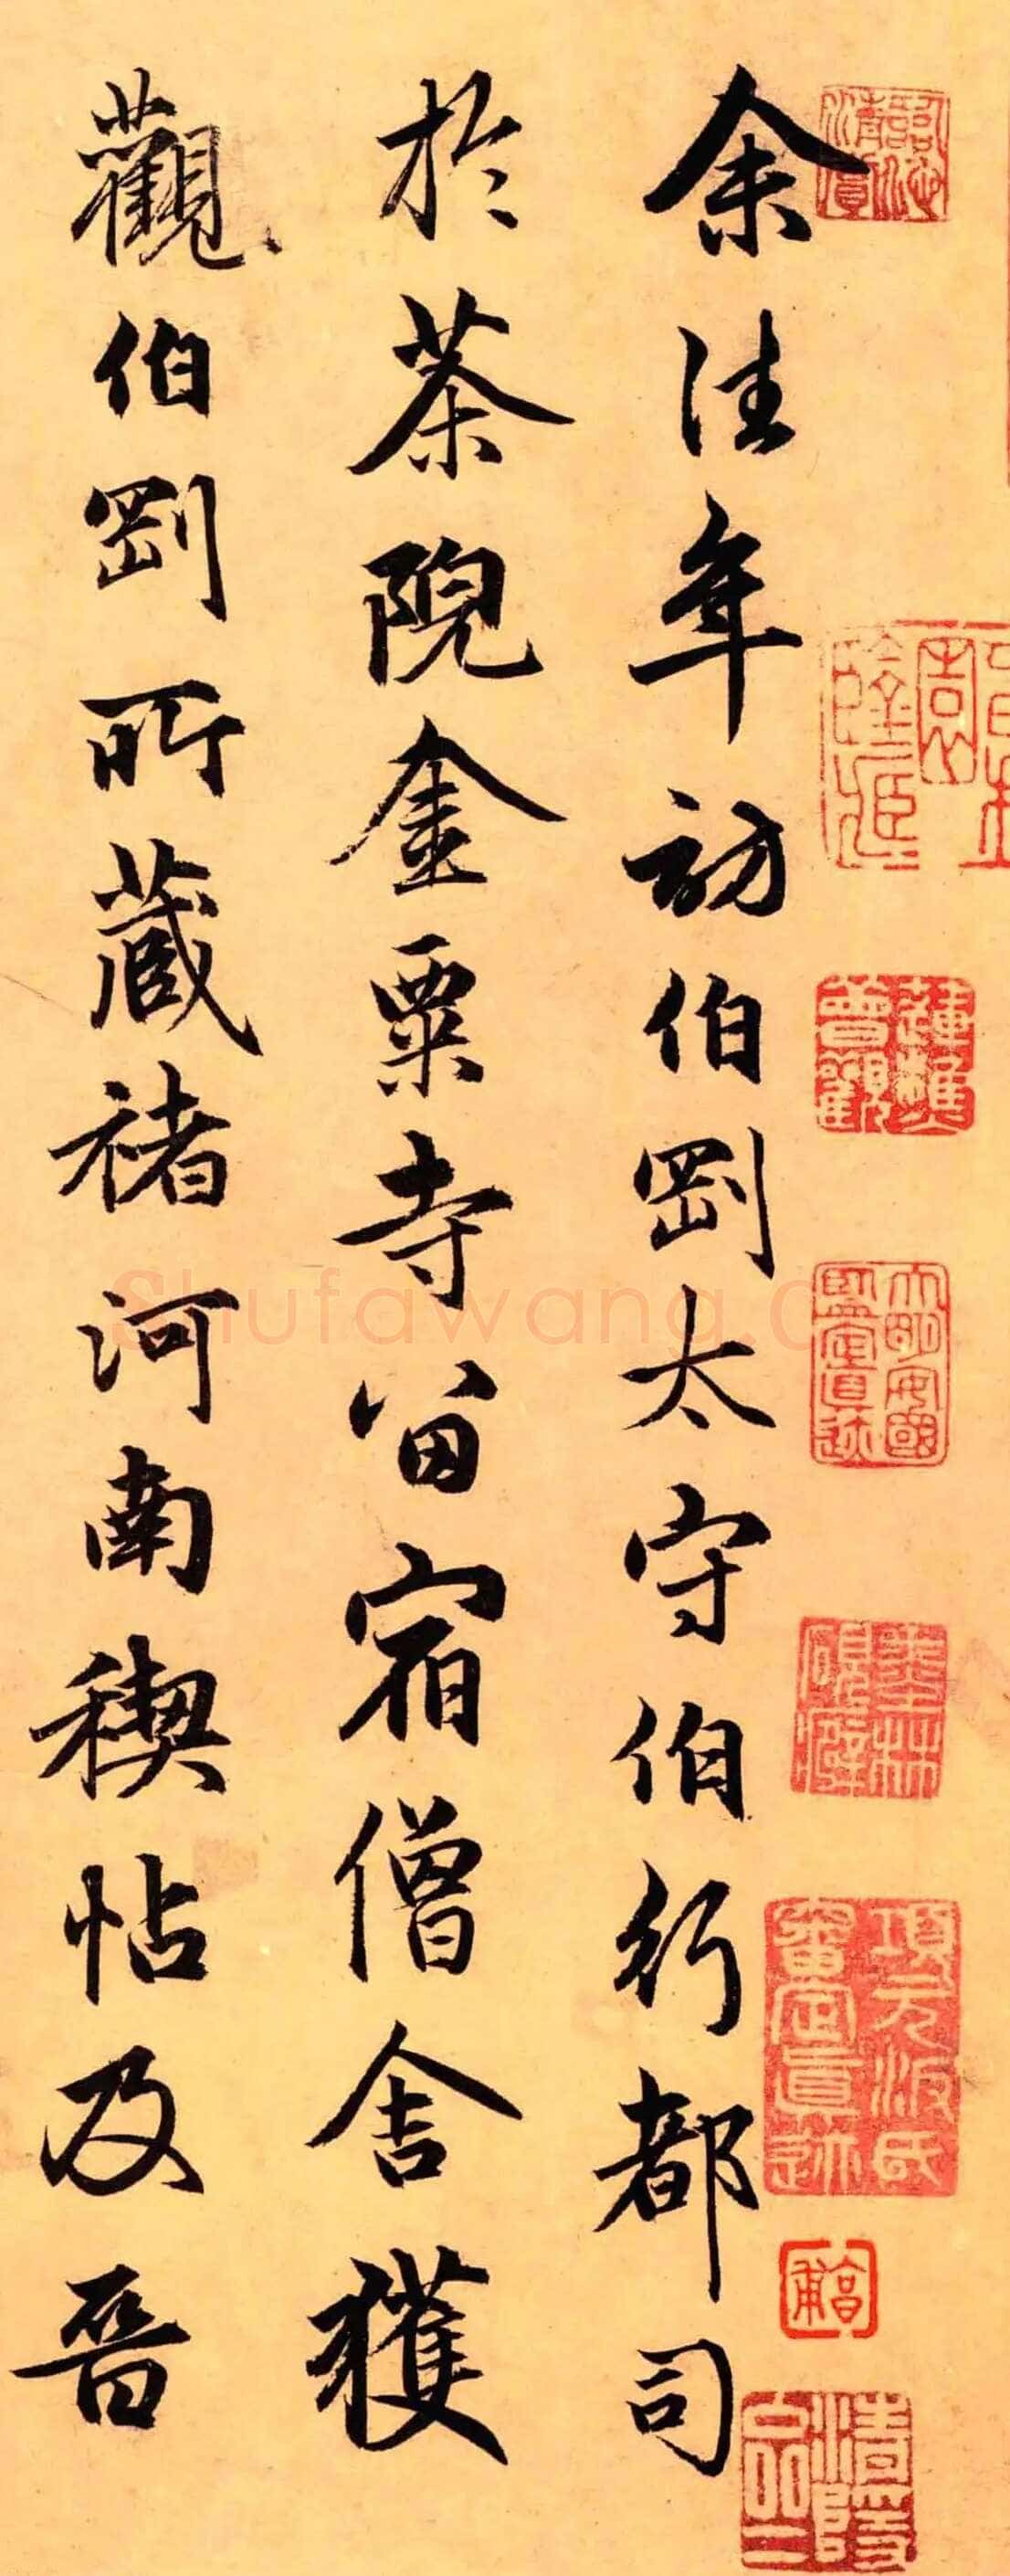 余往年訪伯剛太守伯行都司
於茶院金粟寺留宿僧舍獲
觀伯剛所藏褚河南禊帖及晉
項元汴氏審定真跡
shufawang.c